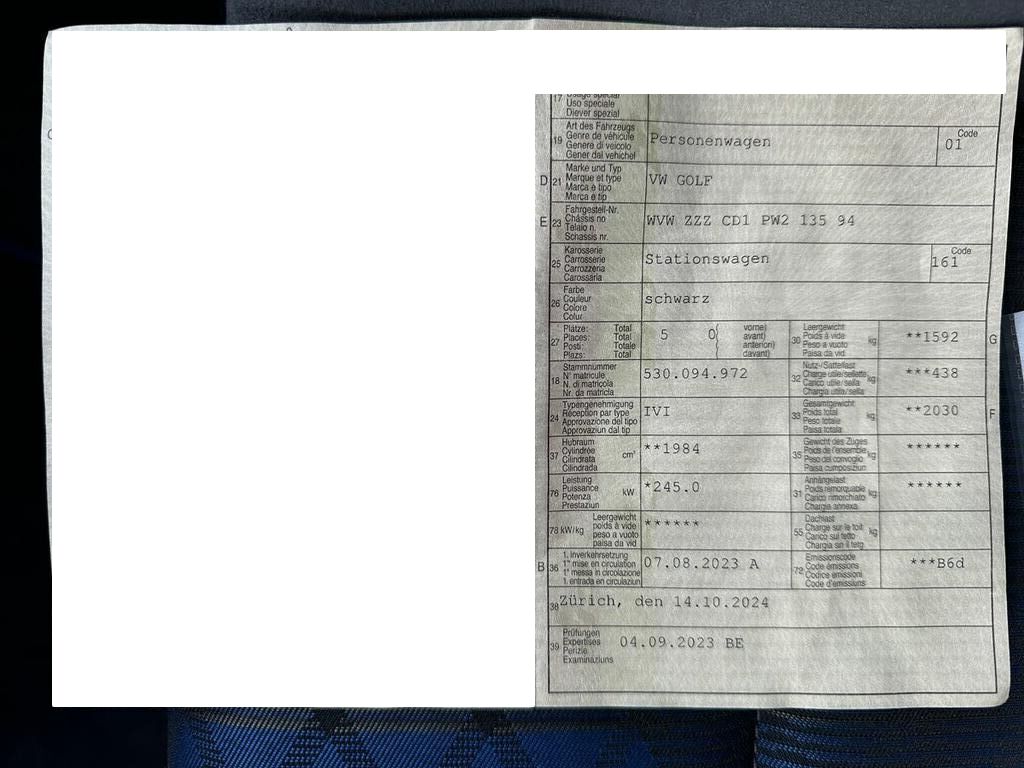 17 Usage spécial
Uso speciale
Diever spezial
19 Art des Fahrzeugs
Genre de véhicule
Genere di veicolo
Gener dal vehichel
Personenwagen
Code
01
D 21 Marke und Typ
Marque et type
Marca e tipo
Marca e tip
VW GOLF
E 23 Fahrgestell-Nr.
Châssis no
Telaio n.
Schassis nr.
WVW ZZZ CD1 PW2 135 94
25 Karosserie
Carrosserie
Carrozzeria
Carossaria
Stationswagen
Code
161
26 Farbe
Couleur
Colore
Colur
schwarz
27 Plätze: Total
Places: Total
Posti: Totale
Plazs: Total
5 0 vorne)
avant)
anteriori)
davant)
30 Leergewicht
Poids à vide
Peso a vuoto
Paisa da vid
kg
**1592
G
18 Stammnummer
N° matricule
N. di matricola
Nr. da matricla
530.094.972
32 Nutz-/Sattellast
Charge utile/sellette
Carico utile/sella
Chargia utila/sella
kg
***438
24 Typengenehmigung
Réception par type
Approvazione del tipo
Approvaziun dal tip
IVI
33 Gesamtgewicht
Poids total
Peso totale
Paisa totala
kg
**2030
F
37 Hubraum
Cylindrée
Cilindrata
Cilindrada
cm³
**1984
35 Gewicht des Zuges
Poids de l'ensemble
Peso del convoglio
Paisa cumposiziun
kg
******
76 Leistung
Puissance
Potenza
Prestaziun
kW
*245.0
31 Anhängelast
Poids remorquable
Carico rimorchiato
Chargia annexa
kg
******
78 kW/kg Leergewicht
poids à vide
peso a vuoto
paisa da vid
******
55 Dachlast
Charge sur le toit
Carico sul tetto
Chargia sin il tetg
kg
B 36 1. Inverkehrsetzung
1re mise en circulation
1a messa in circolazione
1. entrada en circulaziun
07.08.2023 A
72 Emissionscode
Code émissions
Codice emissioni
Code d'emissiuns
***B6d
38 Zürich, den 14.10.2024
39 Prüfungen
Expertises
Perizie
Examinaziuns
04.09.2023 BE